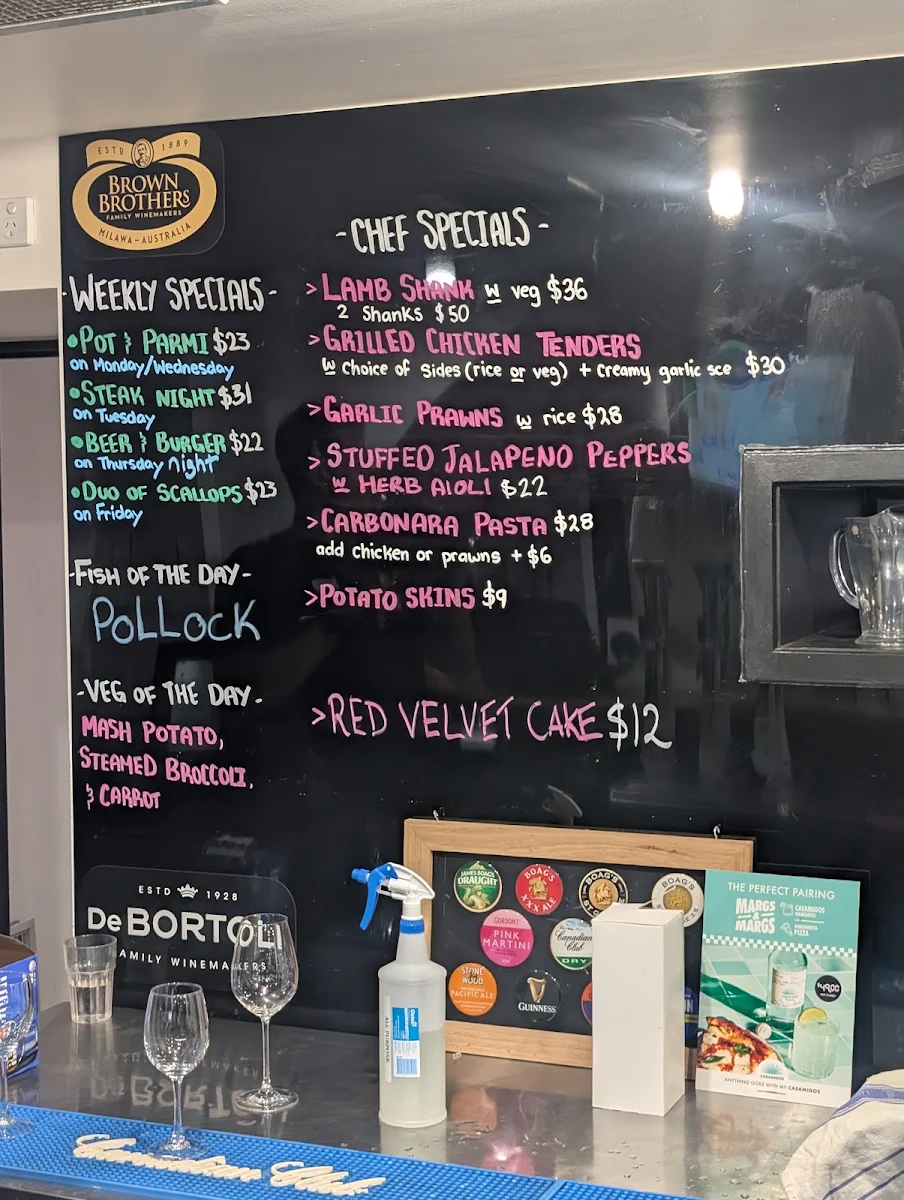 ESTD 1889
BROWN
BROTHERS
FAMILY WINEMAKERS
MILAWA - AUSTRALIA
- WEEKLY SPECIALS -
• POT & PARMI $23
on Monday/Wednesday
• STEAK NIGHT $31
on Tuesday
• BEER & BURGER $22
on Thursday night
• DUO OF SCALLOPS $23
on Friday
- FISH OF THE DAY -
POLLOCK
- VEG OF THE DAY -
MASH POTATO,
STEAMED BROCCOLI,
& CARROT
- CHEF SPECIALS -
> LAMB SHANK w veg $36
2 Shanks $50
> GRILLED CHICKEN TENDERS
w choice of sides (rice or veg) + creamy garlic sce $30
> GARLIC PRAWNS w rice $28
> STUFFED JALAPENO PEPPERS
w HERB AIOLI $22
> CARBONARA PASTA $28
add chicken or prawns + $6
> POTATO SKINS $9
> RED VELVET CAKE $12
ESTD 1928
De BORTOLI
FAMILY WINEMAKERS
JAMES BOAG'S
DRAUGHT
BOAG'S
XXX ALE
BOAG'S
BOAG'S
GORDON'S
PINK
MARTINI
Canadian
Club
DRY
STONE
& WOOD
PACIFIC ALE
GUINNESS
ALL PURPOSE
THE PERFECT PAIRING
MARGS
&
MARGS
CASAMIGOS
MARGARITA
MARGHERITA
PIZZA
$49.00
CASAMIGOS
ANYTHING GOES WITH MY CASAMIGOS
Canadian Club